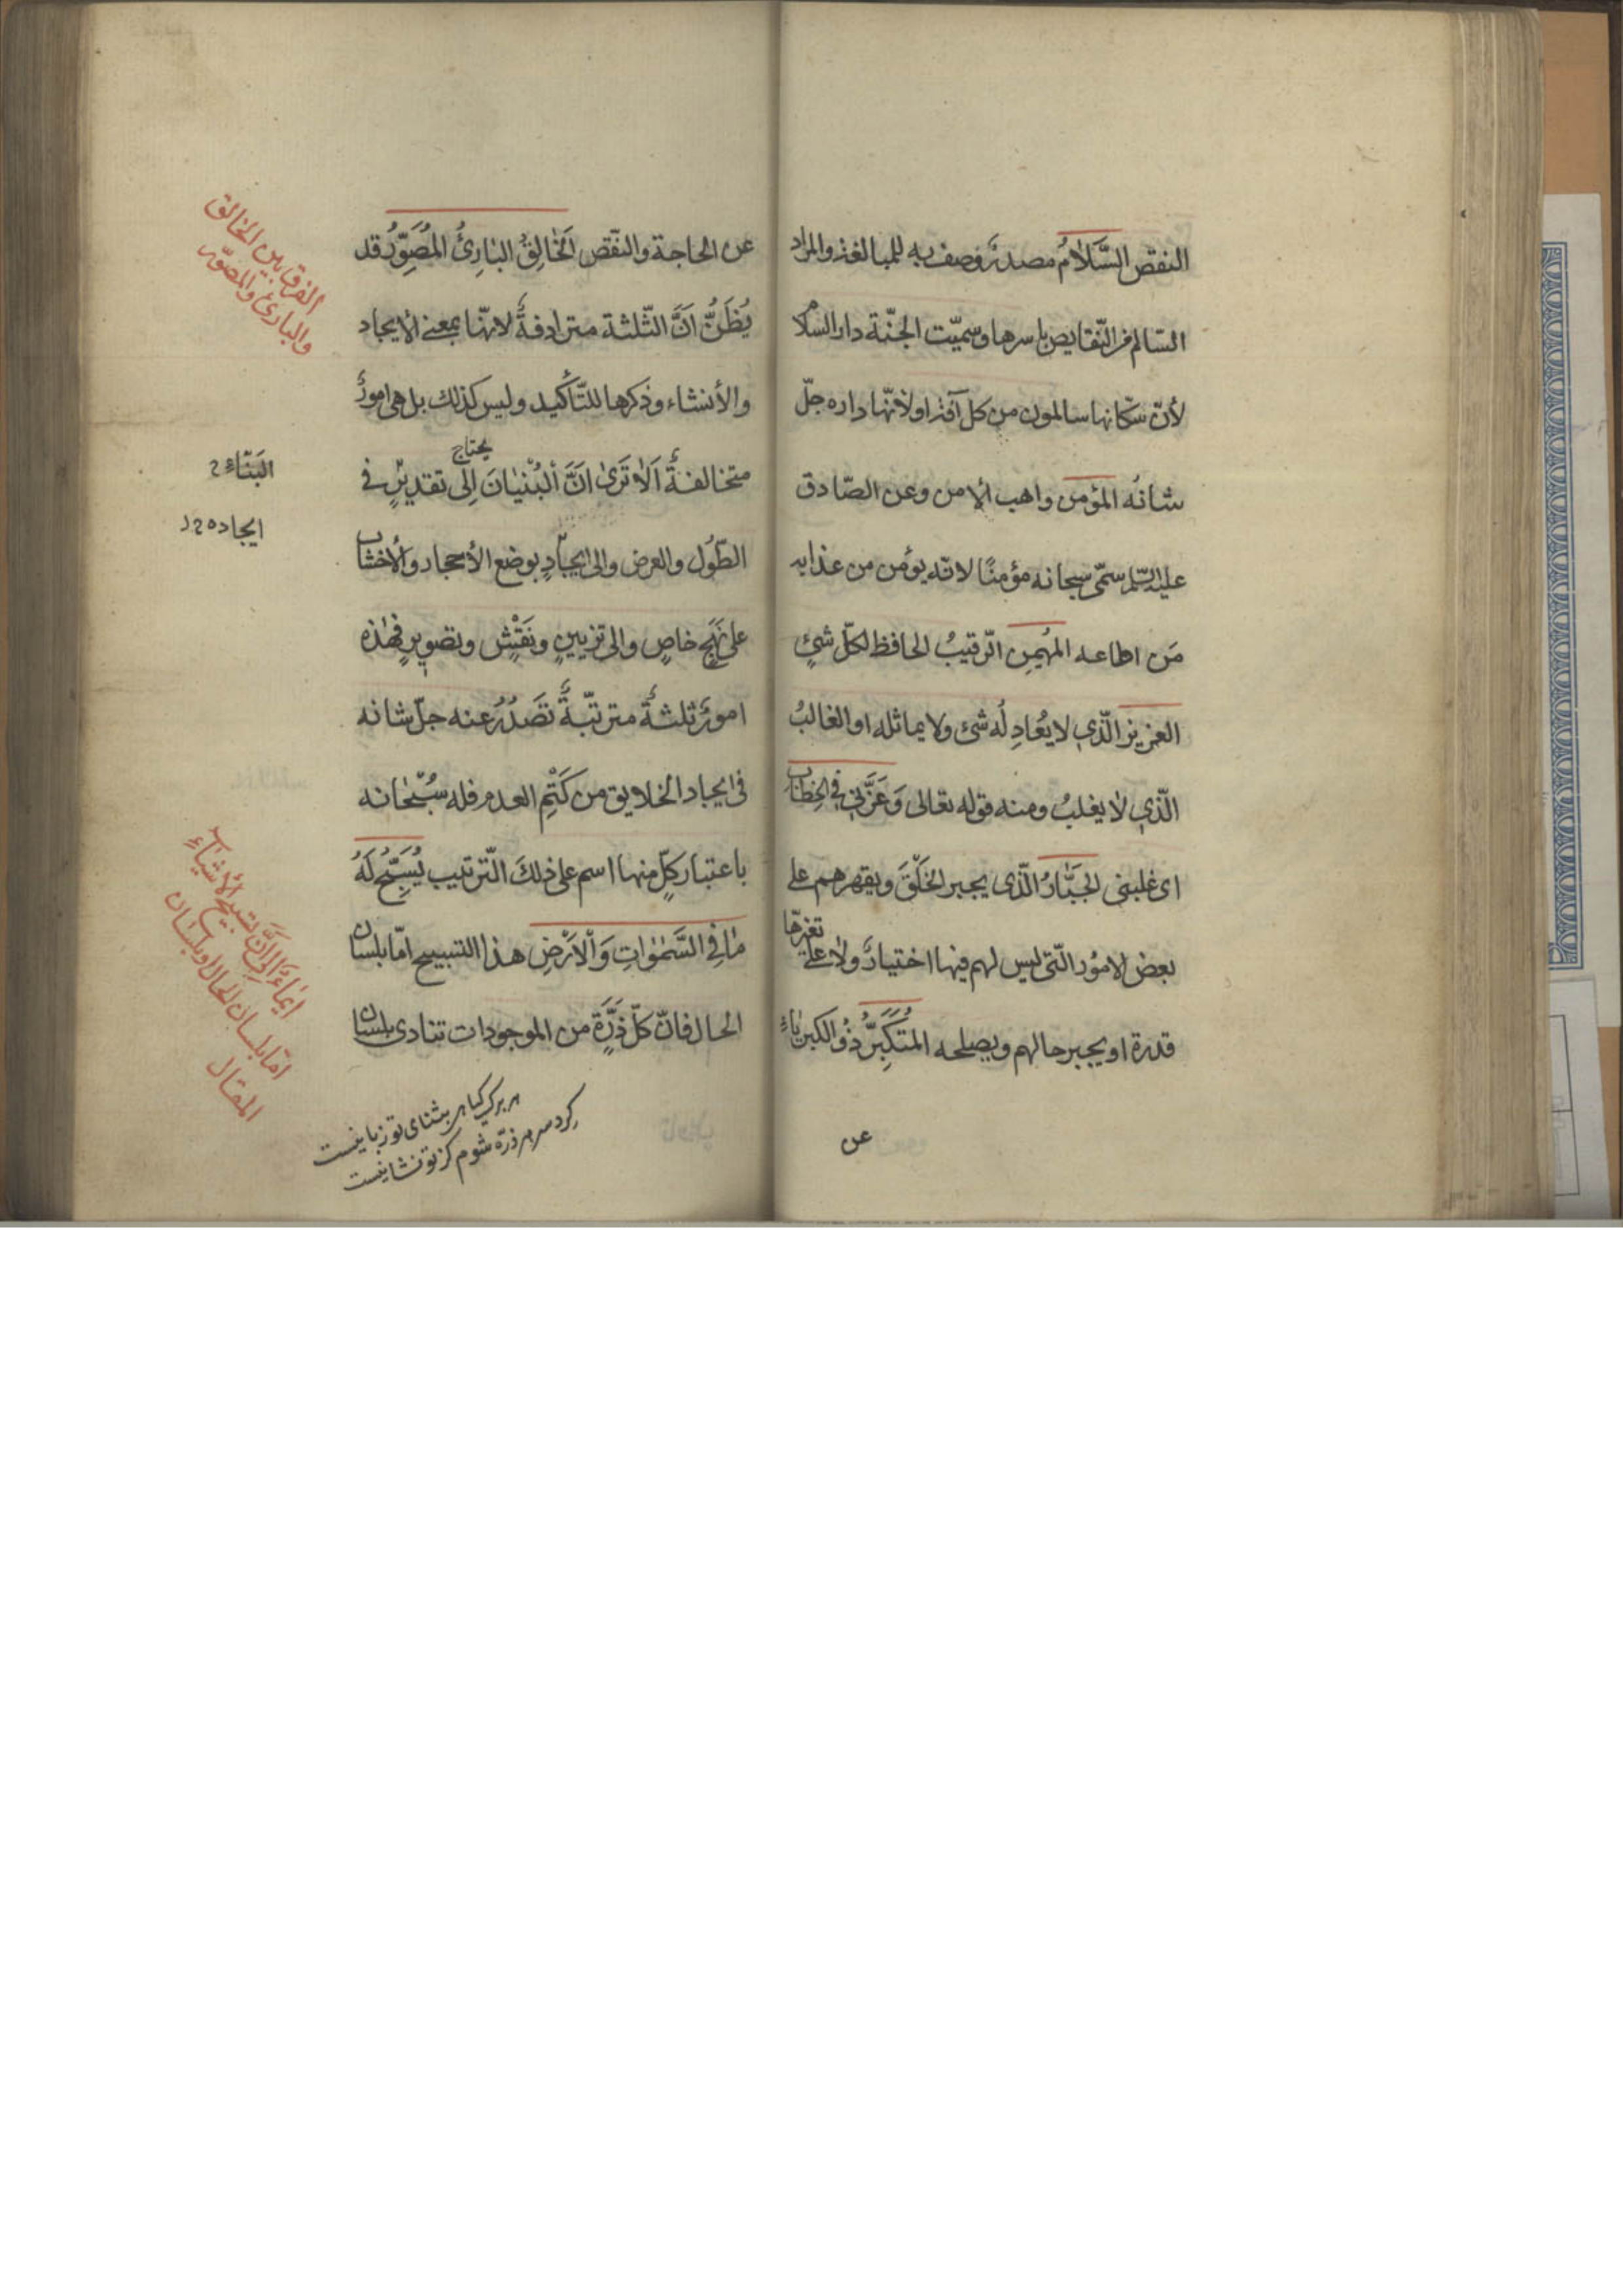 النقص السَّلَامُ مصدرٌ وُصف به للمبالغة والمراد
السّالم من النّقايص باسرها وسمّيت الجنّة دار السّلام
لأنّ سكّانها سالمون من كل آفة او لأنّها داره جلّ
شانُه المؤمن واهب الامن وعن الصّادق
عليه السّلم سمّى سبحانه مؤمنًا لانّه يؤمن من عذابه
مَن اطاعه المُهيمِن الرّقيبُ الحافظ لكلّ شئٍ
العزيز الّذي لا يُعادِلُه شئ ولا يماثله او الغالبُ
الّذي لا يغلبُ ومنه قوله تعالى وَعَزَّنِي فِي الخِطَابِ
اى غلبنى الجَبَّارُ الّذى يجبر الخَلْقَ ويقهرهم على
بعض الامُور الّتى ليس لهم فيها اختيارٌ ولا على تغيرّها
قدرة او يجبر حالهم ويصلحه المُتَكَبِّرُ ذُو الكبرياءِ
عن
عن الحاجة والنّقص اَلْخَالِقُ البَارِئُ المُصَوِّرُ قد
يُظَنُّ اَنَّ الثّلثة مترادفةٌ لانهّا بمعنى الايجاد
والأنشاء وذكرها للتّأكيد وليس كذلك بل هى امورٌ
متخالفةٌ اَلَا تَرَى اَنَّ اَلْبُنْيَانَ يحتاج اِلى تقديرٍ في
الطّول والعرض والى ايجادٍ بوضع الأحجار والأخشاب
على نَهَجٍ خاصٍ والى تزيينٍ ونَقْشٍ وتصويرٍ فهذه
امورٌ ثلثةٌ مترتّبةٌ تَصَدُرُ عنه جلّ شانه
فى ايجاد الخلايق من كَتْمِ العدم فله سُبْحَانه
باعتبار كلٍّ منها اسم على ذلكَ التّرتيب يُسَبِّحُ لَهُ
مَا فِي السَّمٰوَاتِ وَاْلاَرْضِ هذا التسبيح امّا بلسان
الحال فانّ كلّ ذَرَّةٍ من الموجودات تنادى بلسان
هر برگ گياهى بثناى تو زبانيست
گرد سر هر ذرّه شوم كز تو نشانيست
الفرق بين الخالق
والبارئ والمصوّر
البَنَّاءِ 2
ايجاده 2 د
ايماءٌ اِلى اَنَّ تسبيح الأشياءِ
امّا بلسان الحال او بلسان
المقال